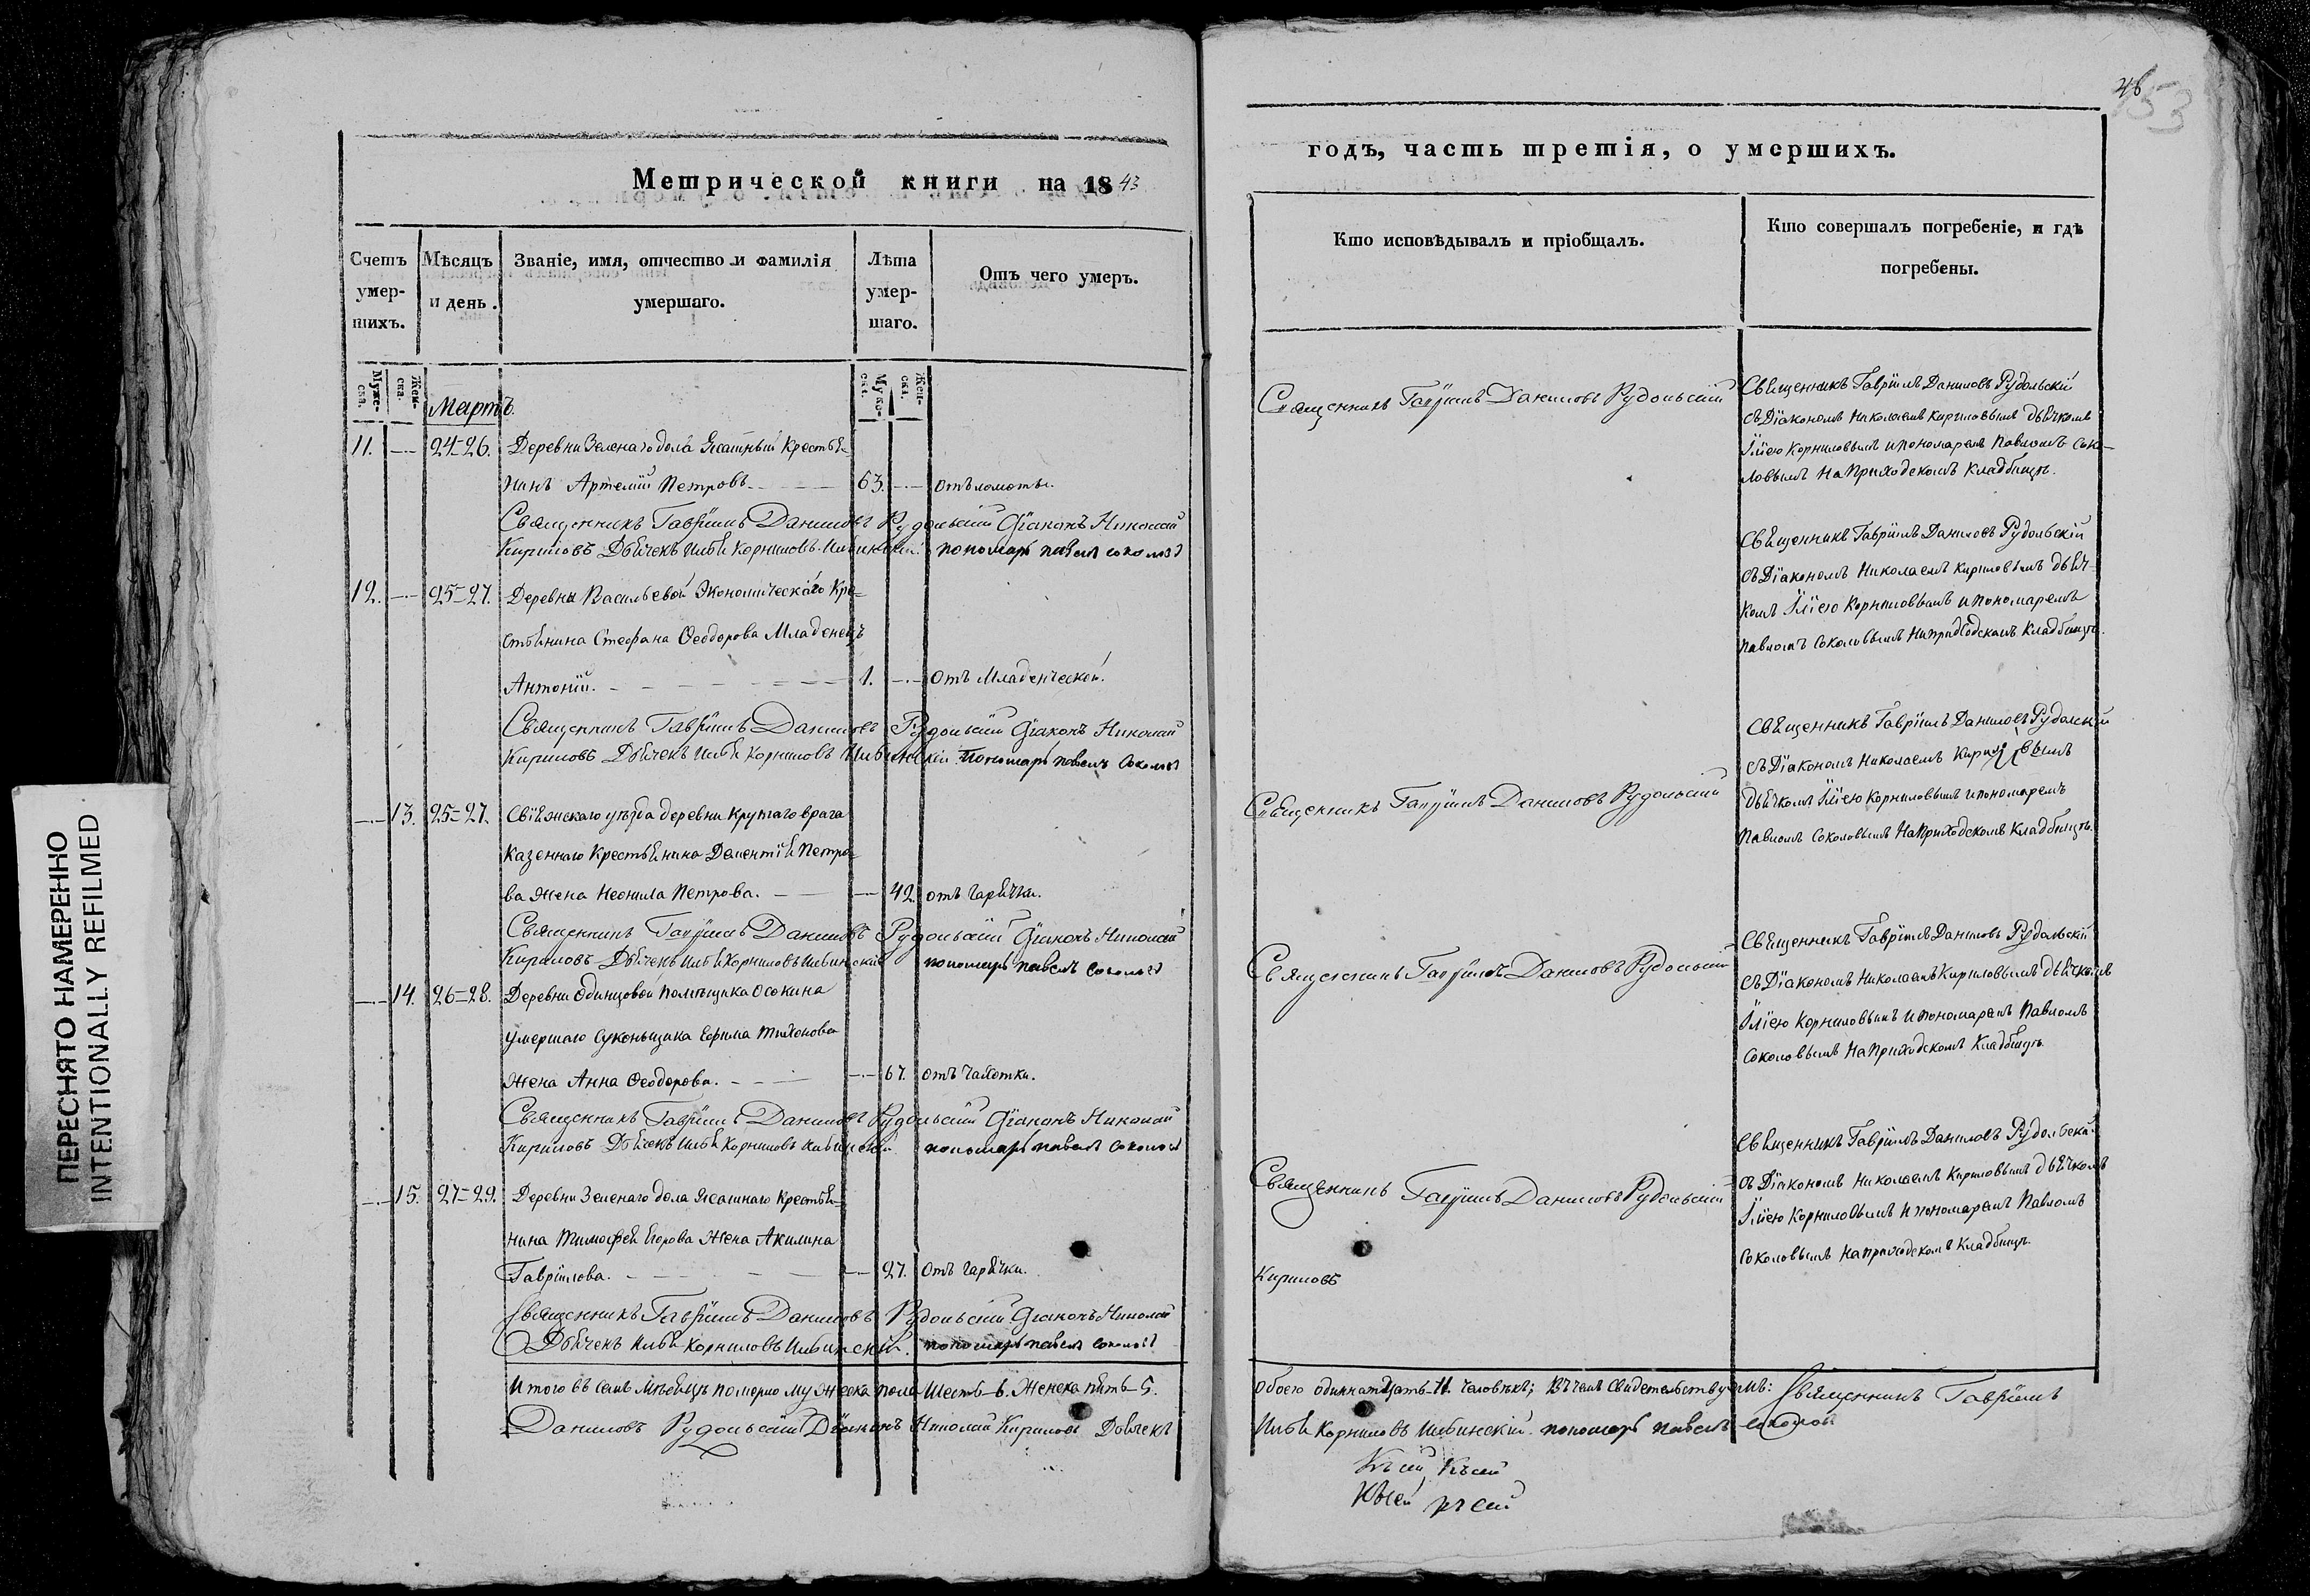 46
153
Метрической книги на 1843
Счетъ умер-шихъ.
Мѣсяцъ и день.
Званіе, имя, отчество и фамилія умершаго.
Лѣта умер-шаго.
Отъ чего умеръ.
Муже-ска.
Жен-ска.
Муже-ска.
Жен-ска.
Мартъ.
11. 24=26. Деревни Зеленаго дола Ясашный Крестья-
нинъ Артемій Петровъ. 63. отъ ломоты.
Священникъ Гавріилъ Даниловъ Рудольскій Діаконъ Николай
Кириловъ Дьячекъ Илья Корниловъ пономарь павелъ соколовъ
12. 25=27. Деревни Васильевой Экономическаго Кре=
стьянина Стефана Ѳеодорова Младенецъ
Антоній. 1. отъ Младенческой.
Священникъ Гавріилъ Даниловъ Рудольскій Діаконъ Николай
Кириловъ Дьячекъ Илья Корниловъ пономарь павелъ соколовъ
13. 25=27. Свіяжскаго уѣзда деревни Крутаго врага
казеннаго Крестьянина Дементія Петро=
ва Жена Неонила Петрова. 42. отъ гарячки.
Священникъ Гавріилъ Даниловъ Рудольскій Діаконъ Николай
Кириловъ Дьячекъ Илья Корниловъ пономарь павелъ соколовъ
14. 26=28. Деревни Одинцовой Помѣщика Осокина
умершаго Суконьщика Ефима Тихонова
Жена Анна Ѳеодорова. 67. отъ чахотки.
Священникъ Гавріилъ Даниловъ Рудольскій Діаконъ Николай
Кириловъ Дьячекъ Илья Корниловъ пономарь павелъ соколовъ
15. 27=29. Деревни Зеленаго дола Ясашнаго Крестья-
нина Тимофея Егорова Жена Акилина
Гавріилова. 27. Отъ гарячки.
Священникъ Гавріилъ Даниловъ Рудольскій Діаконъ Николай
Дьячекъ Илья Корниловъ пономарь павелъ соколовъ
Итого въ семъ Мѣсяцѣ померло мужеска пола Шесть-6. Женска пять-5.
Даниловъ Рудольскій Діаконъ Николай Кириловъ Дьячекъ
годъ, часть третія, о умершихъ.
Кто исповѣдывалъ и пріобщалъ.
Кто совершалъ погребеніе, и гдѣ погребены.
Священникъ Гавріилъ Даниловъ Рудольскій
Священникъ Гавріилъ Даниловъ Рудольскій
съ Діакономъ Николаемъ Кириловымъ дьячкомъ
Иліею Корниловымъ и пономаремъ Павломъ Соко-
ловымъ На Приходскомъ Кладбищѣ.
Священникъ Гавріилъ Даниловъ Рудольскій
съ Діакономъ Николаемъ Кириловымъ дьяч-
комъ Иліею Корниловымъ и пономаремъ
Павломъ Соколовымъ На приходскомъ Кладбищѣ.
Священникъ Гавріилъ Даниловъ Рудольскій
Священникъ Гавріилъ Даниловъ Рудольскій
съ Діакономъ Николаемъ Кириловымъ
дьячкомъ Иліею Корниловымъ и пономаремъ
Павломъ Соколовымъ На Приходскомъ Кладбищѣ.
Священникъ Гавріилъ Даниловъ Рудольскій
Священникъ Гавріилъ Даниловъ Рудольскій
съ Діакономъ Николаемъ Кириловымъ дьячкомъ
Иліею Корниловымъ и пономаремъ Павломъ
Соколовымъ На Приходскомъ Кладбищѣ.
Священникъ Гавріилъ Даниловъ Рудольскій
Священникъ Гавріилъ Даниловъ Рудольскій
съ Діакономъ Николаемъ Кириловымъ дьячкомъ
Иліею Корниловымъ и пономаремъ Павломъ
Соколовымъ На приходскомъ Кладбищѣ.
Кириловъ
Обоего одиннатцать-11. человѣкъ; Въ чемъ свидетельствуемъ: Священникъ Гавріилъ
Илья Корниловъ пономарь павелъ соколовъ
ПЕРЕСНЯТО НАМЕРЕННО
INTENTIONALLY REFILMED